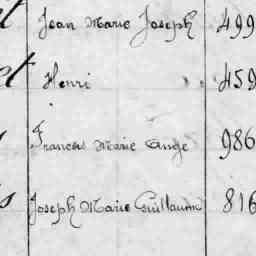 Jean Marie Joseph 499
Henri 459
Francois Marie Ange 986
Joseph Marie Guillaume 816